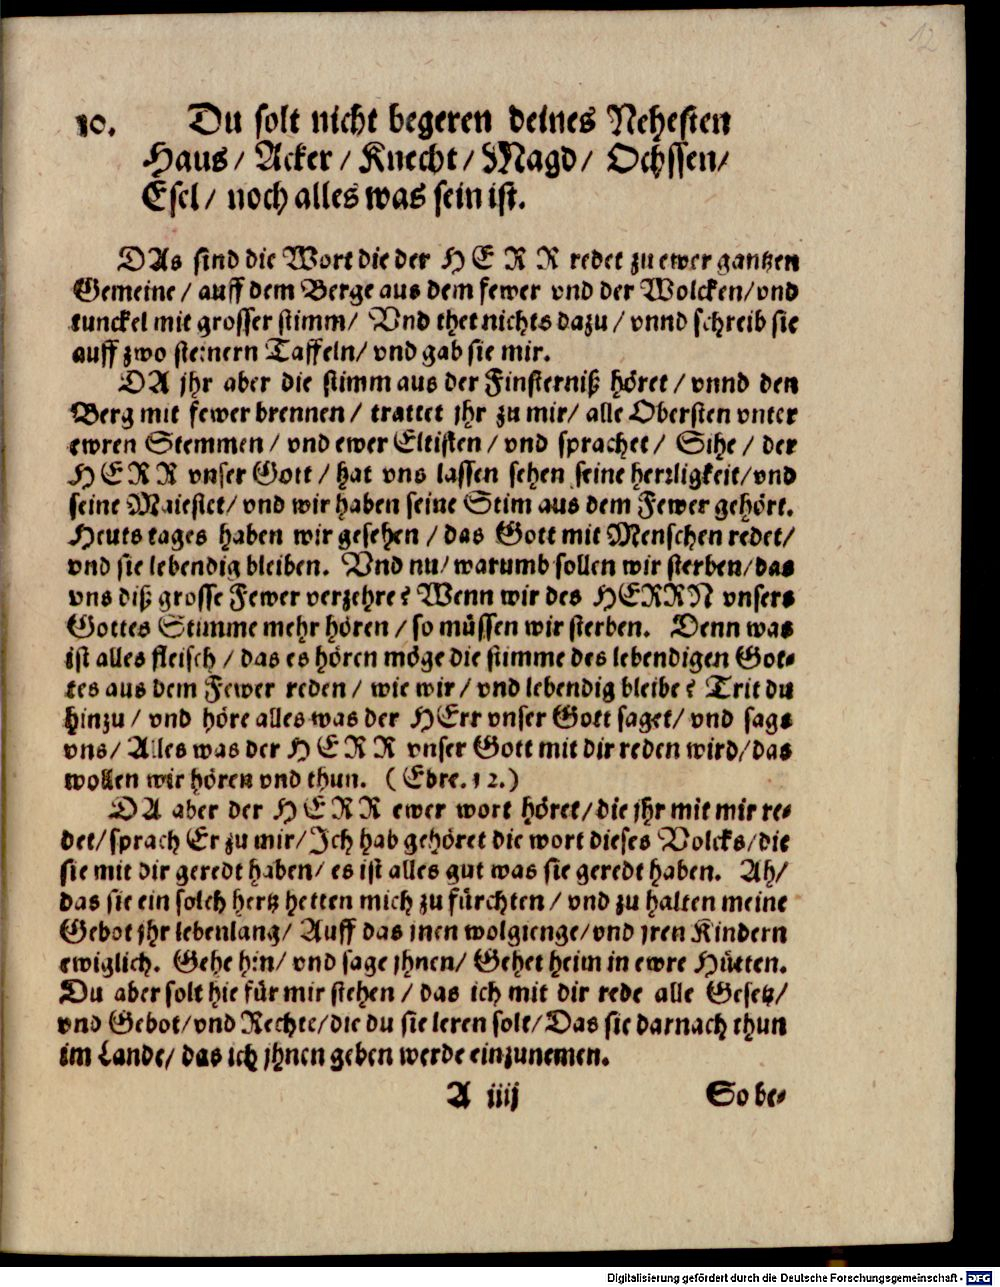 12
10. Du solt nicht begeren deines Nehesten
Haus/ Acker/ Knecht/ Magd/ Ochssen/
Esel/ noch alles was sein ist.
DAs sind die Wort die der HERR redet zu ewer gantzen
Gemeine/ auff dem Berge aus dem fewer vnd der Wolcken/vnd
tunckel mit grosser stimm/ Vnd thet nichts dazu/ vnnd schreib sie
auff zwo steinern Taffeln/ vnd gab sie mir.
DA jhr aber die stimm aus der Finsterniß höret/ vnnd den
Berg mit fewer brennen/ trattet jhr zu mir/ alle Obersten vnter
ewren Stemmen/ vnd ewer Eltisten/ vnd sprachet/ Sihe/ der
HERR vnser Gott/ hat vns lassen sehen seine herrligkeit/vnd
seine Maiestet/ vnd wir haben seine Stim aus dem Fewer gehört.
Heuts tages haben wir gesehen/ das Gott mit Menschen redet/
vnd sie lebendig bleiben. Vnd nu/ warumb sollen wir sterben/das
vns diß grosse Fewer verzehre? Wenn wir des HERRN vnsers
Gottes Stimme mehr hören/ so müssen wir sterben. Denn was
ist alles fleisch/ das es hören möge die stimme des lebendigen Got-
tes aus dem Fewer reden/ wie wir/ vnd lebendig bleibe? Trit du
hinzu/ vnd höre alles was der HErr vnser Gott saget/ vnd sags
vns/ Alles was der HERR vnser Gott mit dir reden wird/das
wollen wir hören vnd thun. (Ebre. 12.)
DA aber der HERR ewer wort höret/die jhr mit mir re-
det/sprach Er zu mir/Ich hab gehöret die wort dieses Volcks/die
sie mit dir geredt haben/ es ist alles gut was sie geredt haben. Ah/
das sie ein solch hertz hetten mich zu fürchten/ vnd zu halten meine
Gebot jhr lebenlang/ Auff das jnen wolgienge/vnd jren Kindern
ewiglich. Gehe hin/ vnd sage jhnen/ Gehet heim in ewre Hütten.
Du aber solt hie für mir stehen/ das ich mit dir rede alle Gesetz/
vnd Gebot/vnd Rechte/die du sie leren solt/Das sie darnach thun
im Lande/ das ich jhnen geben werde einzunemen.
A iiij So be-
Digitalisierung gefördert durch die Deutsche Forschungsgemeinschaft - DFG